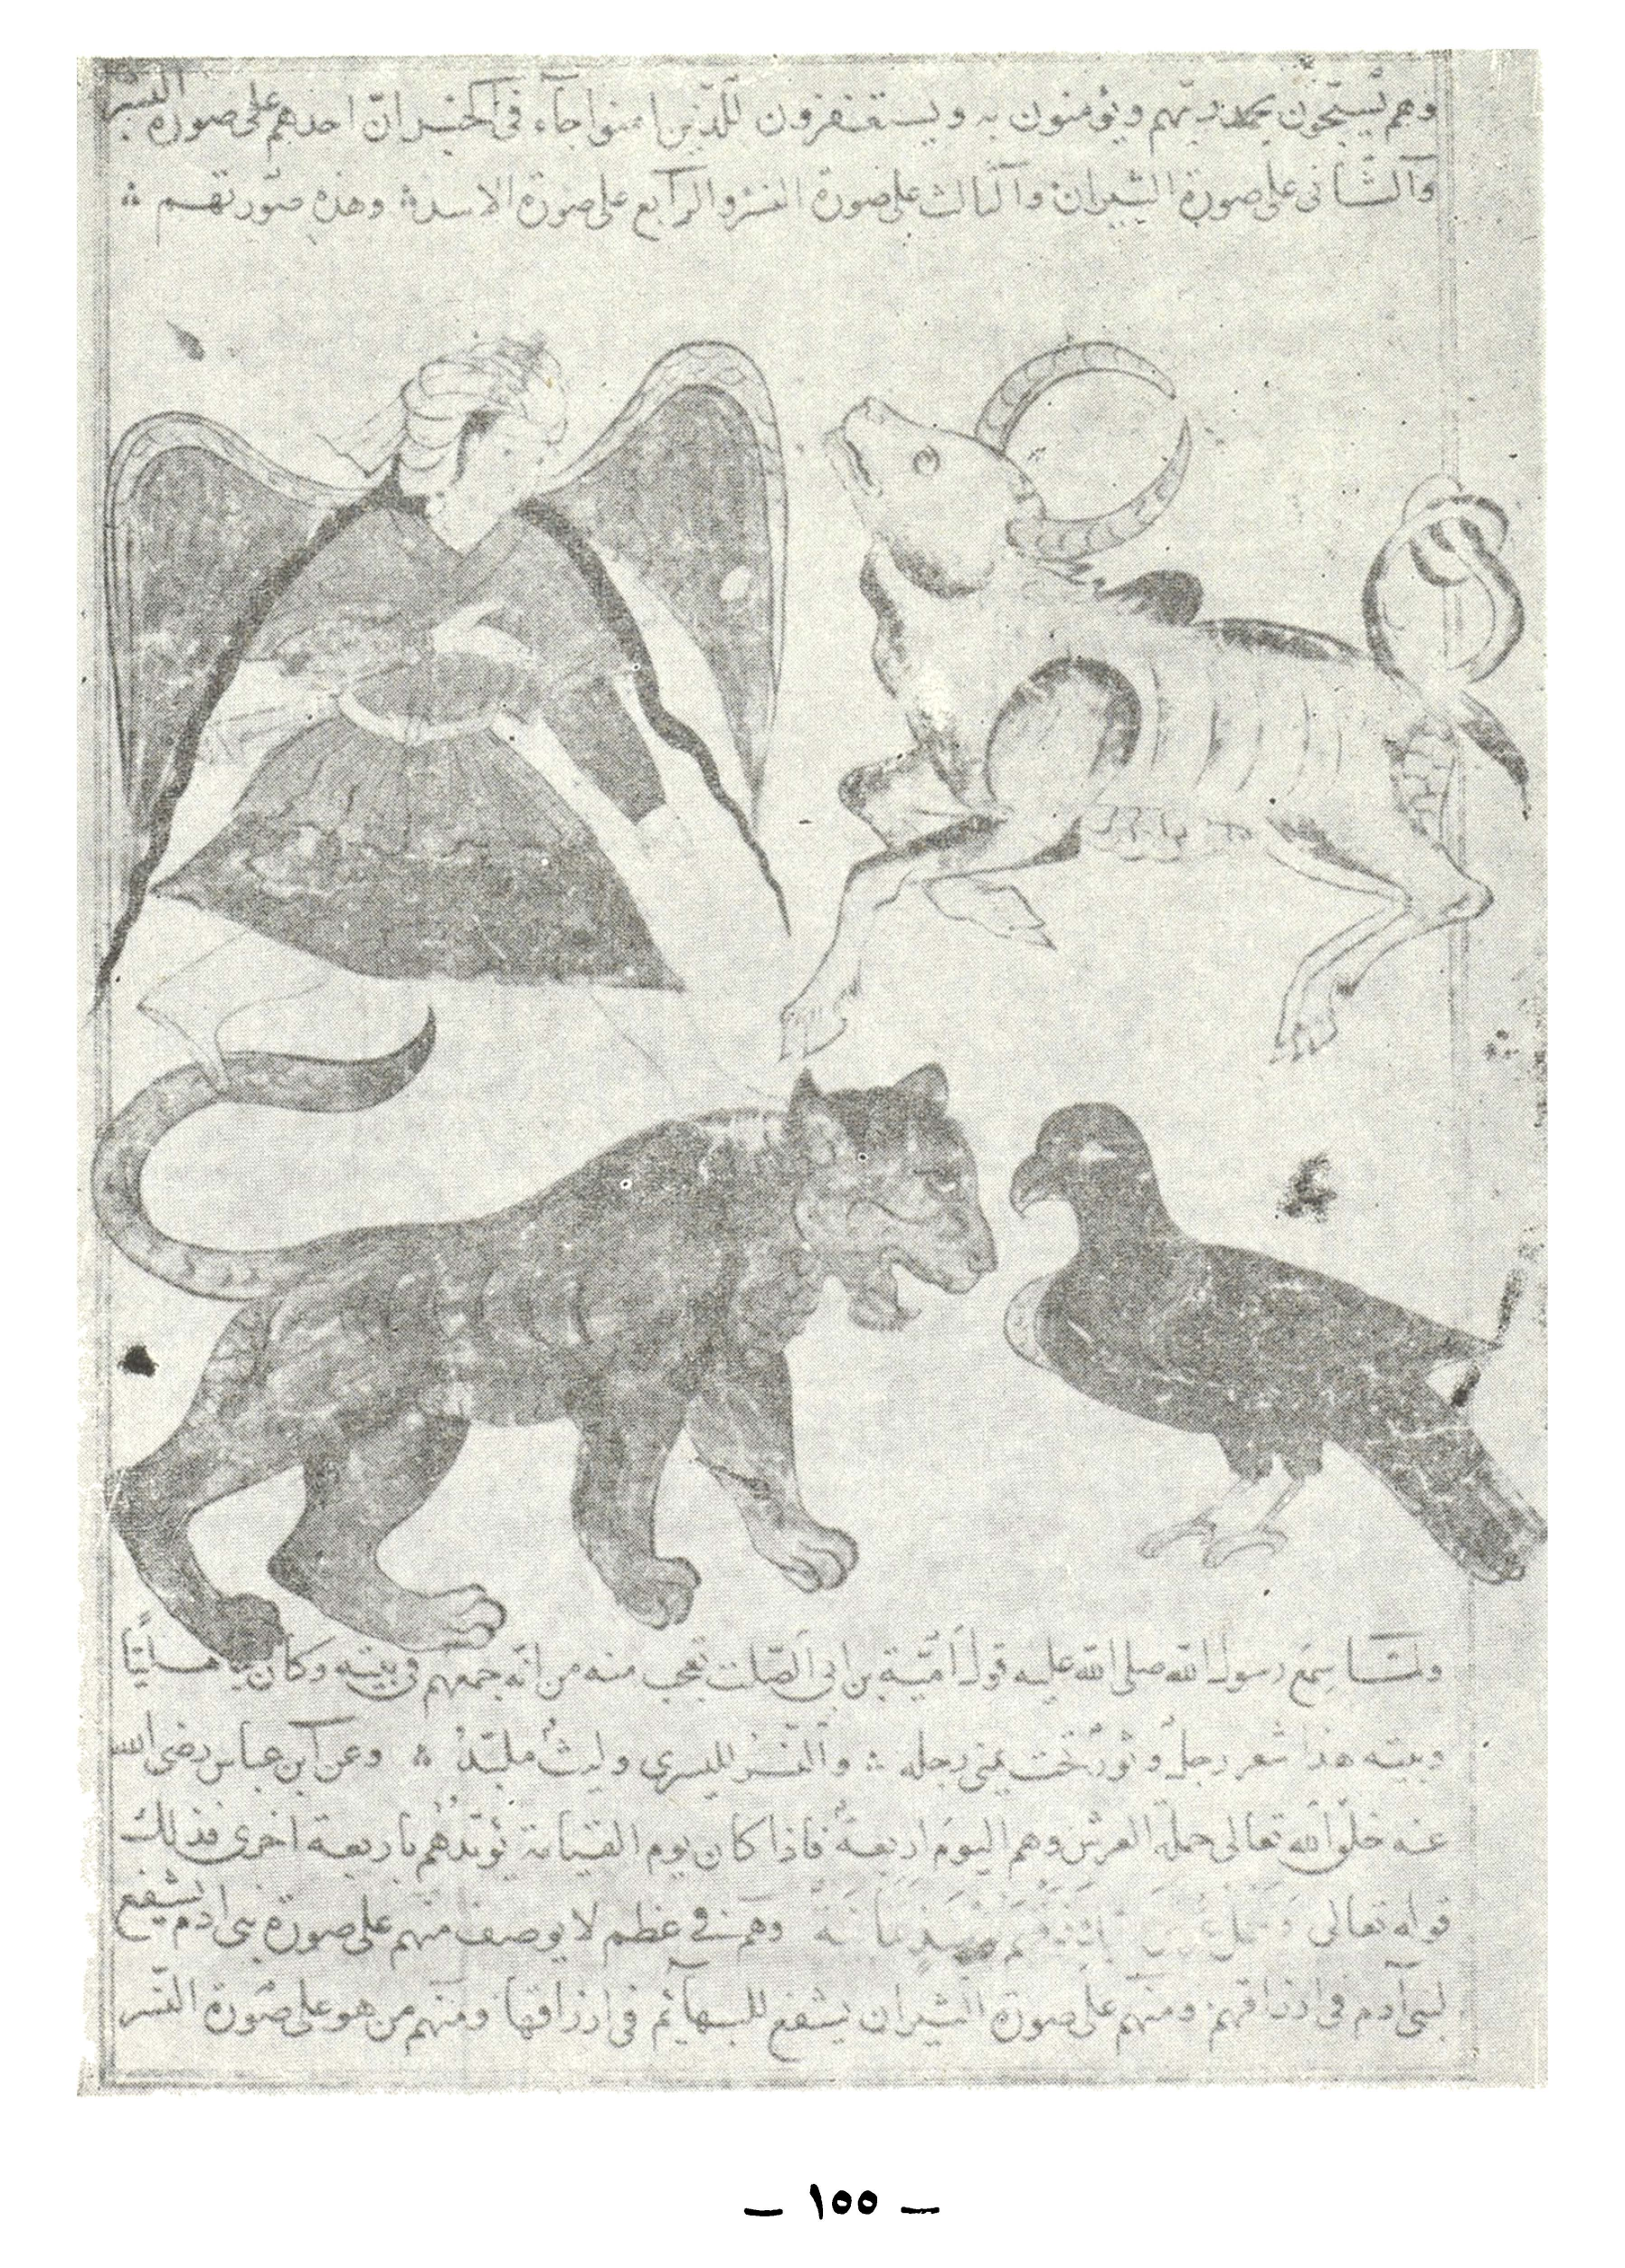 وهم يسبّحون بحمد ربّهم ويؤمنون به ويستغفرون للّذين امنوا جآء في الخبر انّ احدهم على صورة البشر
والثّانى على صورة الثيران والثالث على صورة النسر والرابع على صورة الاسد وهذه صورتهم
ولمّا سمع رسول الله صلى الله عليه قول أميّة بن ابى الصّلت تعجب منه من انّه جمعهم فى بيته وكان جاهليّا
وبيته هذا شعر رجل وثور تحت يمنى رجله والنّسر لليسرى وليث ملبّد وعن ابن عباس رضى الله
عنه خلق الله تعالى حملة العرش وهم اليوم اربعة فاذا كان يوم القيامة يؤيّدهم باربعة اخرى فذلك
قوله تعالى وهم فى عظم لا يوصف منهم على صورة بنى ادم يشفع
لبنى آدم فى ارزاقهم ومنهم على صورة الثيران يشفع للبهآئم فى ارزاقها ومنهم من هو على صورة النّسر
— ١٥٥ —